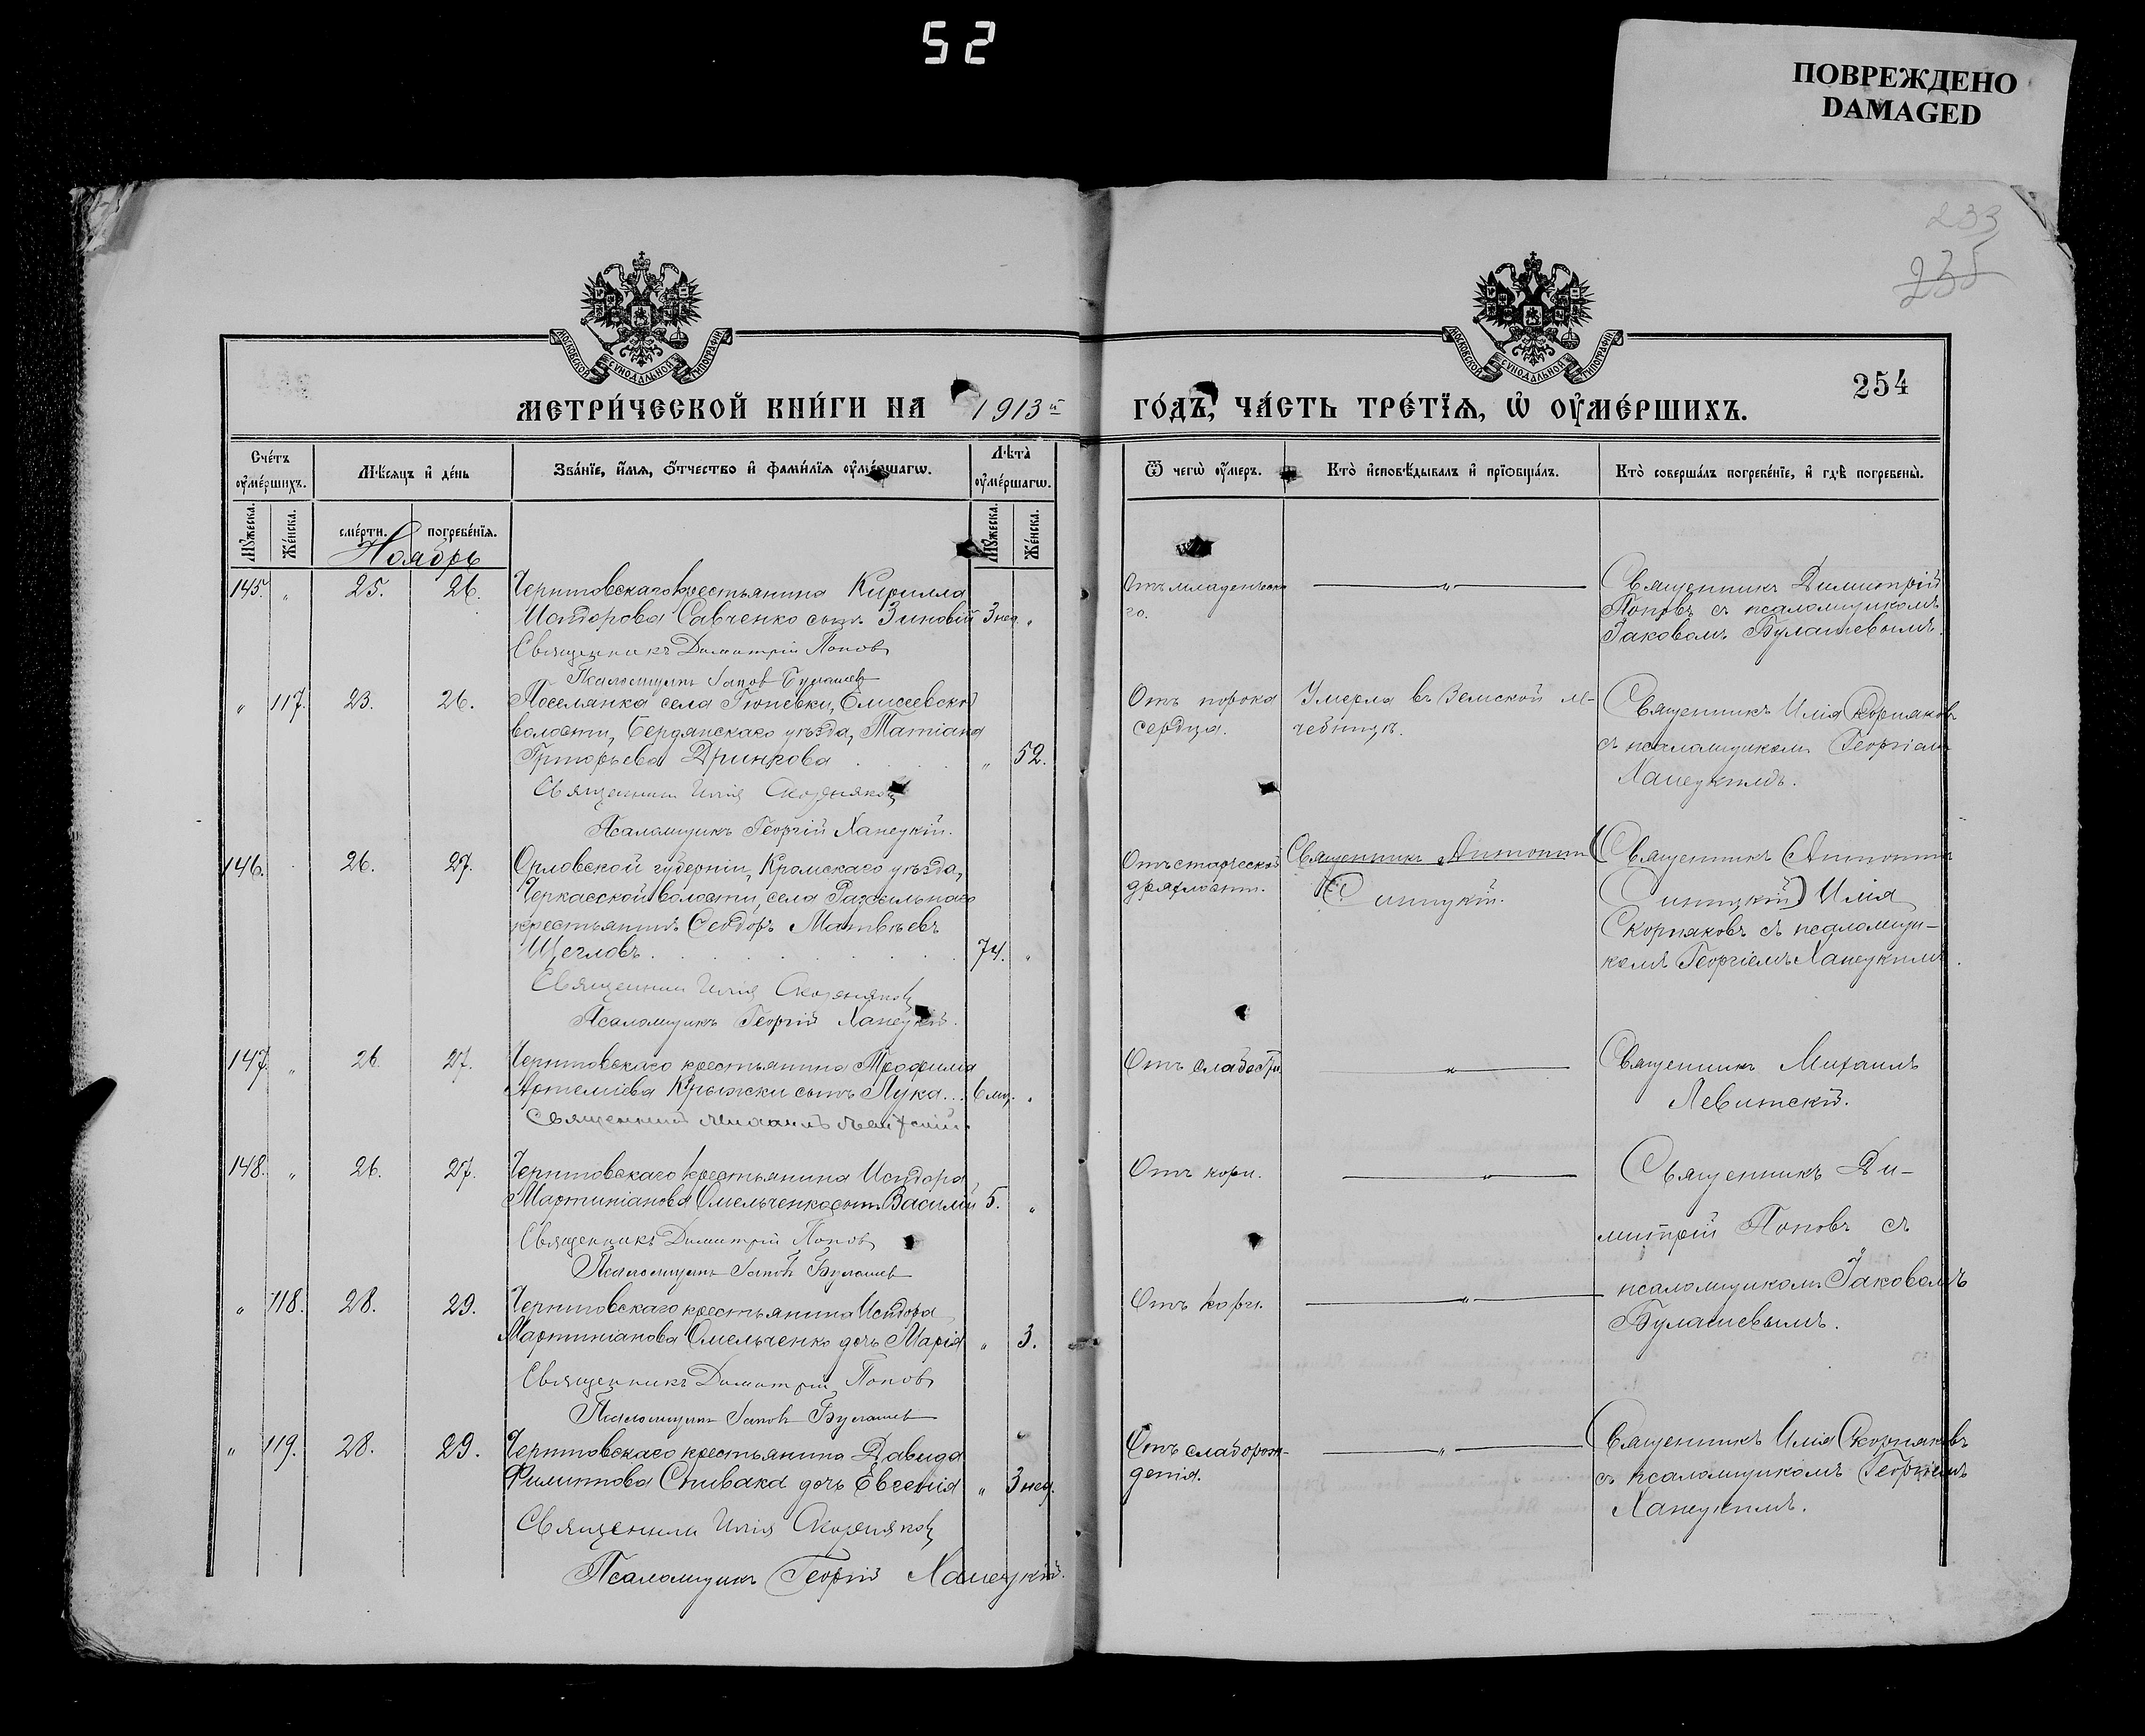 52
ПОВРЕЖДЕНО
DAMAGED
233
235
254
МОСКОВСКОЙ СѴНОДАЛЬНОЙ ТИПОГРАФІИ
МОСКОВСКОЙ СѴНОДАЛЬНОЙ ТИПОГРАФІИ
МЕТРИ́ЧЕСКОЙ КНИ́ГИ НА 1913й ГО́ДЪ, ЧА́СТЬ ТРЕ́ТЇѦ, Ѡ҆ ОУ҆МЕ́РШИХЪ.
Сче́тъ оу҆ме́ршихъ.
Мꙋ́жеска.
Же́нска.
Мѣ́сяцъ и҆ де́нь
сме́рти.
погребе́нїѧ.
Зва́нїе, и҆́мѧ, ѻ҆́тчество и҆ фами́лїѧ оу҆ме́ршагѡ.
Лѣ́та̀ оу҆ме́ршагѡ.
Мꙋ́жеска.
Же́нска.
Ѿ чегѡ̀ оу҆́меръ.
Кто̀ и҆сповѣ́дывалъ и҆ прїѡбща́лъ.
Кто̀ соверша́лъ погребе́нїе, и҆ гдѣ̀ погребены̀.
Ноябрь
145. " 25. 26. Черниговскаго крестьянина Кирилла
Исидорова Савченко сынъ Зиновій 3 нед. "
Священникъ Димитрій Попов
Псаломщикъ Іаков Булашев
Отъ младенческа
го.
"
Священникъ Димитрій
Поповъ съ псаломщикомъ
Іаковомъ Булашевымъ.
" 117. 23. 26. Поселянка села Гюневки, Елисеевской
волости, Бердянскаго уѣзда, Татіана
Григорьева Дринкова " 52.
Священник Илія Скорняков
Псаломщикъ Георгій Ханецкій.
Отъ порока
сердца.
Умерла въ Земской ле-
чебницѣ.
Священникъ Илія Скорняковъ
съ псаломщикомъ Георгіем
Ханецкимъ.
146. 26. 27. Орловской губерніи, Кромскаго уѣзда,
Черкасской волости, села
крестьянинъ Ѳеодоръ Матвѣевъ
Щегловъ. 74. "
Священник Илія Скорняков
Псаломщикъ Георгій Ханецкій.
Отъ старческой
дряхлости.
Священникъ Антоній
Синицкій.
Священникъ (Антоній
Синицкій) Илія
Скорняковъ съ псаломщи-
комъ Георгіемъ Ханецкимъ.
147. " 26. 27. Черниговскаго крестьянина Трофима
Артеміева Крыжки сынъ Лука... 6 мѣс. "
Священникъ Михаилъ Левитскій.
Отъ слабости.
"
Священникъ Михаилъ
Левитскій.
148. " 26. 27. Черниговскаго крестьянина Исидора
Мартиніанова Омельченко сынъ Василій 5. "
Священникъ Димитрій Попов
Псаломщикъ Іаков Булашев
Отъ кори.
"
Священникъ Ди-
митрій Поповъ съ
псаломщикомъ Іаковомъ
Булашевымъ.
" 118. 28. 29. Черниговскаго крестьянина Исидора
Мартиніанова Омельченко дочь Марія " 3.
Священникъ Димитрій Попов
Псаломщикъ Іаков Булашев
Отъ кори.
"
" 119. 28. 29. Черниговскаго крестьянина Давида
Филиппова Спивака дочь Евгенія " 3 нед.
Священник Илія Скорняков
Псаломщикъ Георгій Ханецкій.
Отъ слаборож-
денія.
"
Священникъ Илія Скорняковъ
съ псаломщикомъ Георгіемъ
Ханецкимъ.